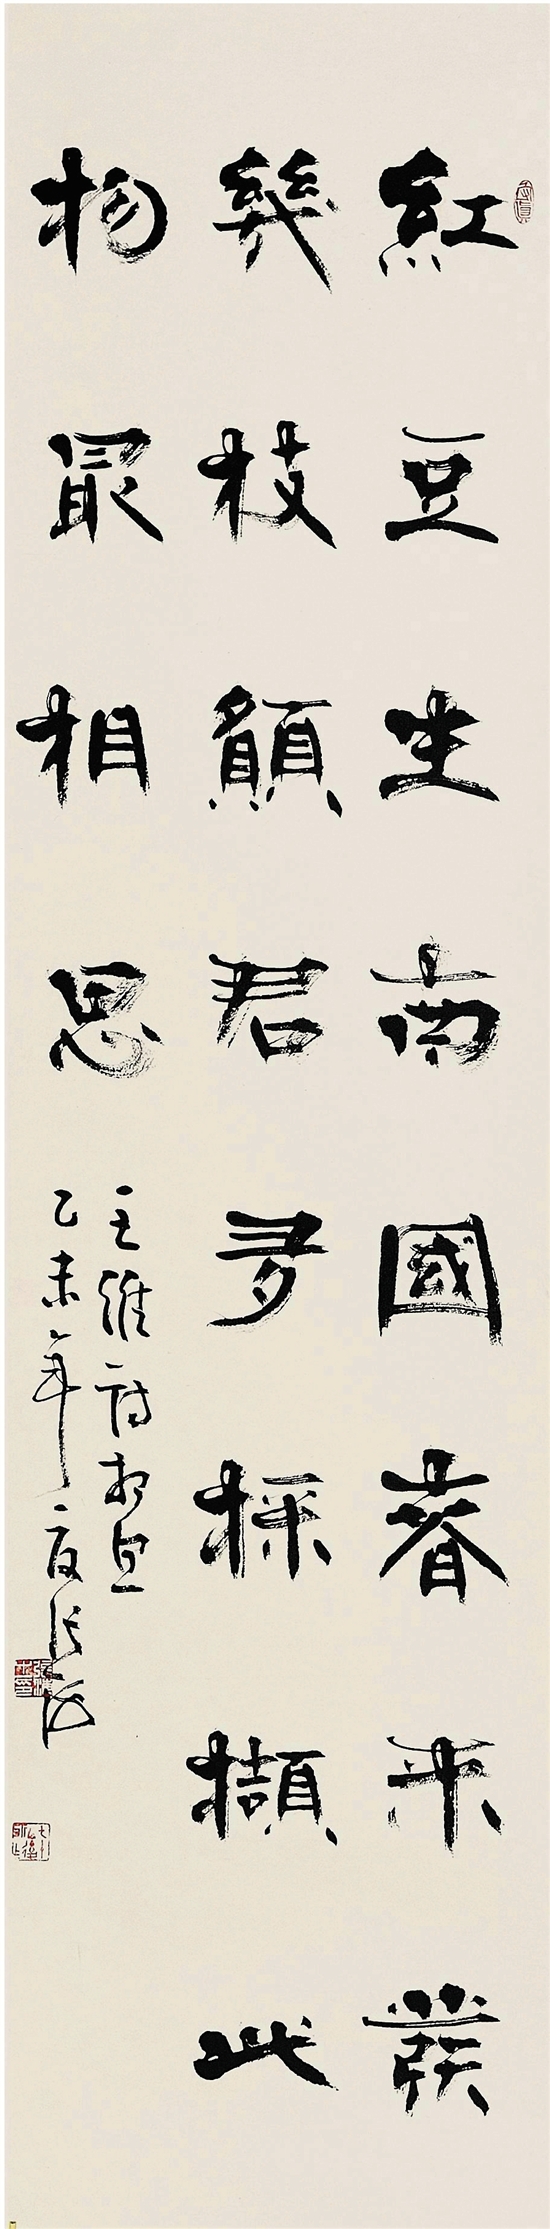 紅豆生南國春来發
幾枝願君多採擷此
物最相思
王維詩相思
乙未年夏張海